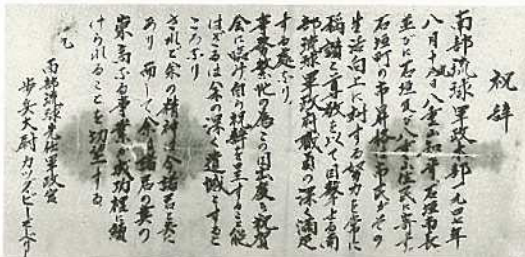 祝辞
南部琉球軍政本部一九四七年
八月十日八重山知事、石垣市長
並びに石垣及び八重山住民に寄す
石垣町の市昇格は市民がその
生活向上に対する努力を常に
称讃と尊敬を以て目撃し来る南
部琉球軍政府職員の深く満足
する処なり。
事務繁忙の為この目出度き祝賀
会に臨み自ら祝辞を呈することの能
はざるは余の深く遺憾とする
ころなり
されど余の精神は今諸君と共に
あり而して余は諸君の異の
崇高なる事業が成功裡に続
けられることを切望する。
南部琉球先任軍政官
歩兵大尉